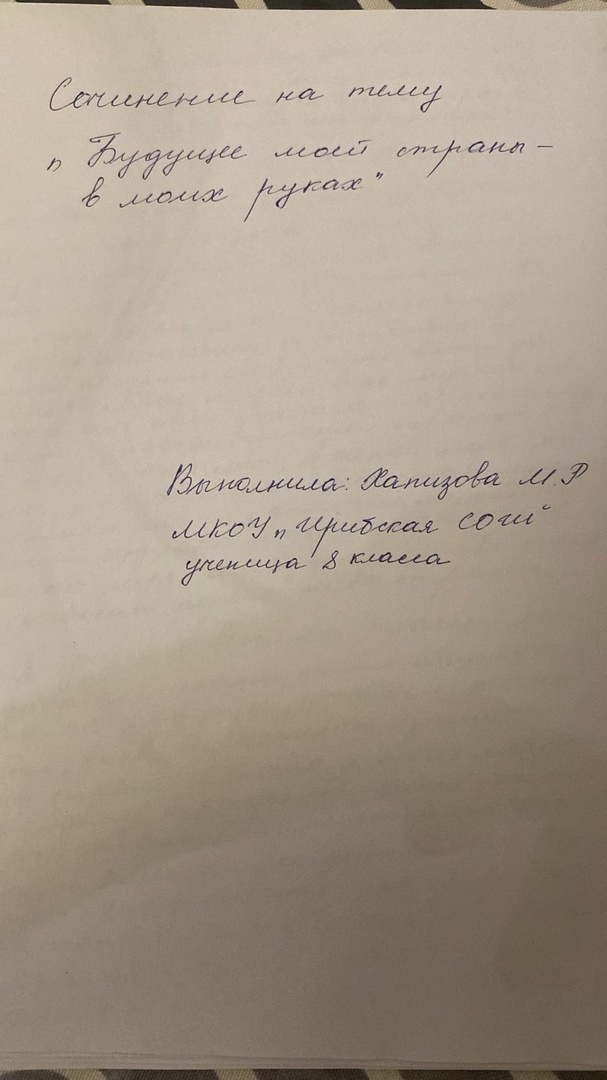 Сочинение на тему
„Будущее моей страны –
в моих руках"
Выполнила: Хапизова М.Р
МКОУ „Ирибская СОШ"
ученица 8 класса